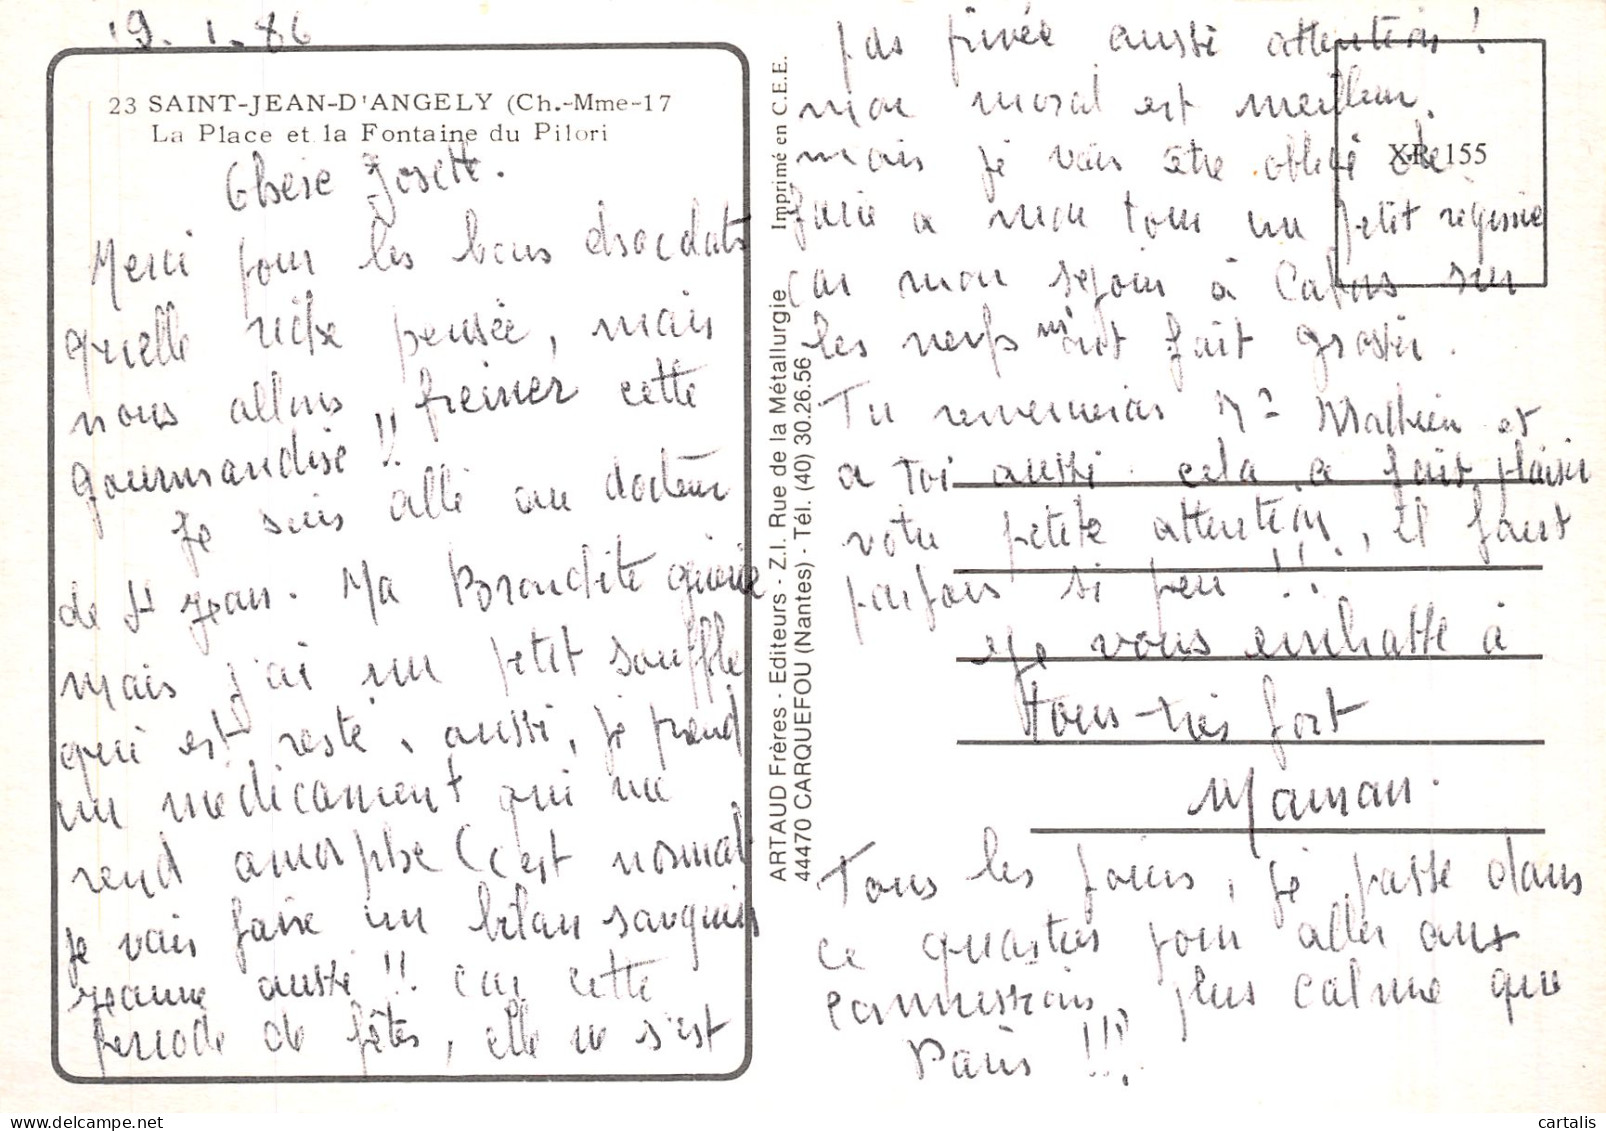 19.1.86
23 SAINT-JEAN-D'ANGELY (Ch.-Mme-17
La Place et la Fontaine du Pilori
Chere Josette.
Merci pour les bons chocolats
quelle riche pensée, mais
nous allons freiner cette
gourmandise !!
Je suis allé au docteur
de St Jean. Ma Bronchite guérie
mais j'ai un petit souffle
qui est resté, aussi, je prend
un médicament qui me
rend amorphe (c'est normal
je vais faire un bilan sanguin
Jeanne aussi !! car cette
periode de fêtes, elle ne s'est
pas privée aussi attention !
mon moral est meilleur.
mais je vais être obligé de
faire a mon tour un petit régime
car mon sejour à Cabris sur
les nerfs m'ont fait grossir.
Tu remercieras Mme Mathieu et
a toi aussi cela a fait plaisir
votre petite attention, il faut
parfois si peu !!!
Je vous embrasse à
tous très fort
Maman.
Tous les jours, je passe dans
ce quartier pour aller aux
commissions, plus calme que
Paris !!!
ARTAUD Frères - Editeurs - Z.I. Rue de la Métallurgie
44470 CARQUEFOU (Nantes) - Tél. (40) 30.26.56
Imprimé en C.E.E.
155
cartalis